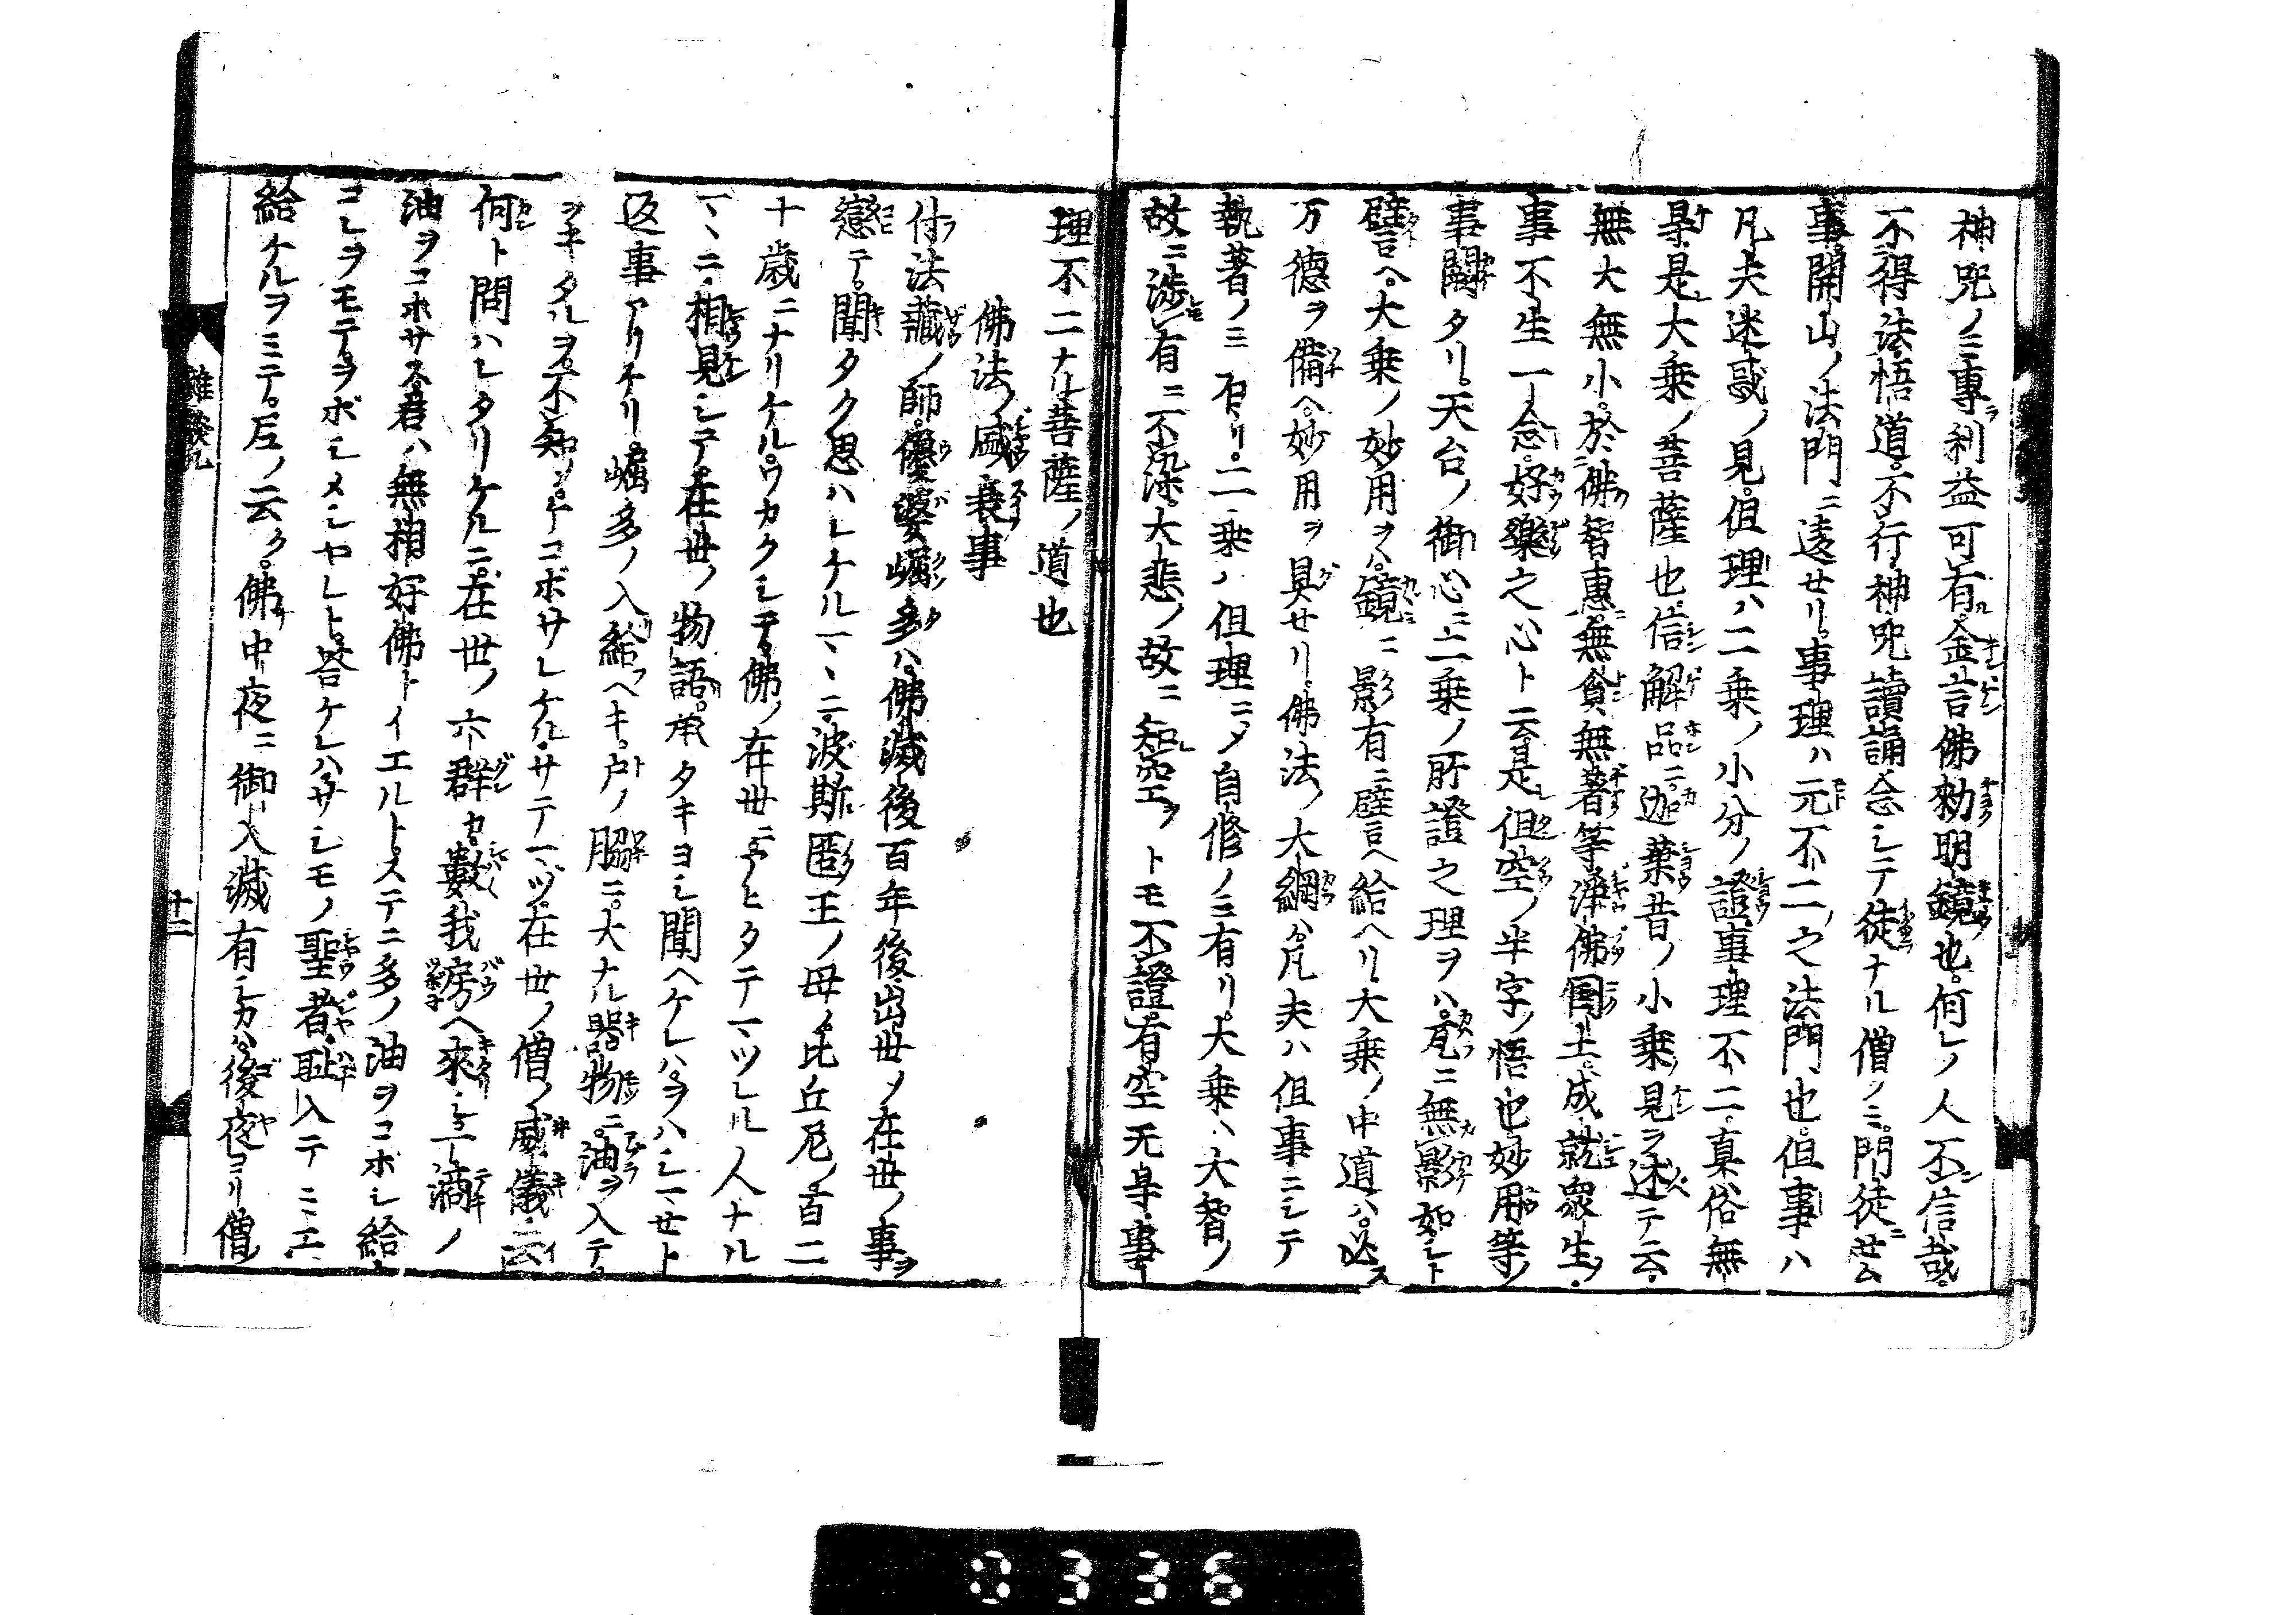 神咒ノミ專ラ利益可有ル金言佛勅明鏡也。何レノ人不信哉。
不得法悟道。不行神咒讀誦念シテ徒ナル僧ノミ。門徒ニセム
事開山ノ法門ニ遠セリ。事理ハ元不二之法門也。但事ハ
凡夫迷惑ノ見。但理ハ二乘ノ小分ノ證。事理不二。眞俗無
是大乘ノ菩薩也。信解品ニ。迦葉昔ノ小乘ノ見ヲ述テ云。
無大無小。於佛智惠。無貪無著等淨佛國土。成就衆生ヲ。
事不生一念好樂之心ト云。是レ但空ノ半字ノ悟也。妙用等ノ
事闕タリ。天台ノ御心ニ二乘ノ所證之理ヲハ。瓦ニ無影如シト
譬ヘ。大乘ノ妙用ヲハ。鏡ニ影有ニ譬ヘ給ヘリ。大乘ノ中道ハ。必ス
万德ヲ備ヘ。妙用ヲ具セリ。佛法ノ大綱ハ。凡夫ハ但事ニシテ
執著ノミ有リ。二乘ハ但理ニメ自修ノミ有リ。大乘ハ大智ノ
故ニ涉有ニ不染。大悲ノ故ニ知空ヲトモ不證。有空无㝵。事
理不二ナル菩薩ノ道也
佛法ノ盛衰事
付法藏ノ師。優婆崛多ハ。佛滅後百年後出世ノ在世ノ事ヲ
戀テ。聞タク思ハレケルマヽニ。波斯匿王ノ母ノ比丘尼ノ百二
十歲ニナリケル。ワカクシテ。佛ノ在世ニアヒタテマツレル人ナル
マヽニ。相見シテ。在世ノ物語。承タキヨシ聞ヘケレハ。ヲハシマセト
返事アリケリ。崛多ノ入給フヘキ。戶ノ脇ニ。大ナル器物ニ。油ヲ入テ。
ヲキタルヲ。不知シテコボサレケル。サテマヅ。在世ノ僧ノ威儀ニ云
何ト問ハレタリケルニ。在世ノ六群カ。數我房ヘ來シ。一滴ノ
油ヲコホサス。君ハ無相好佛トイエルトステニ多ノ油ヲコホシ給
コレヲモテヲボシメシヤレト。答ケレハ。サシモノ聖者。恥入テミエ
給ケルヲミテ。尼ノ云ク。佛中夜ニ御入滅有シカハ。後夜ヨリ僧
雜談九
十二
0336